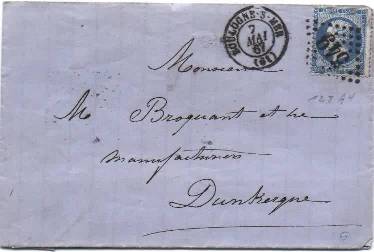 BOULOGNE-S-MER
7
MAI
(61)
Monsieur
M Broquant et
manufacturiers
Dunkerque